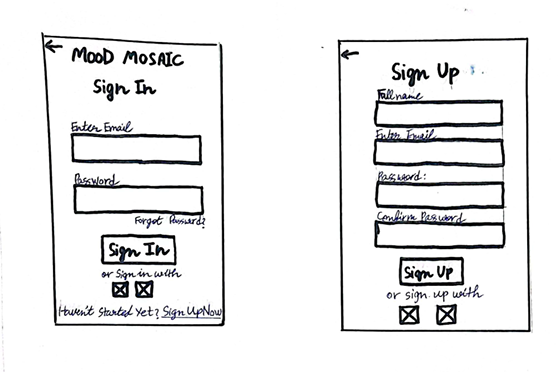 MOOD MOSAIC
Sign In
Enter Email
Password
Forgot Password?
Sign In
or Sign in with
Haven't Started Yet? Sign Up Now
Sign Up
Full name
Enter Email
Password:
Confirm Password
Sign Up
or sign up with